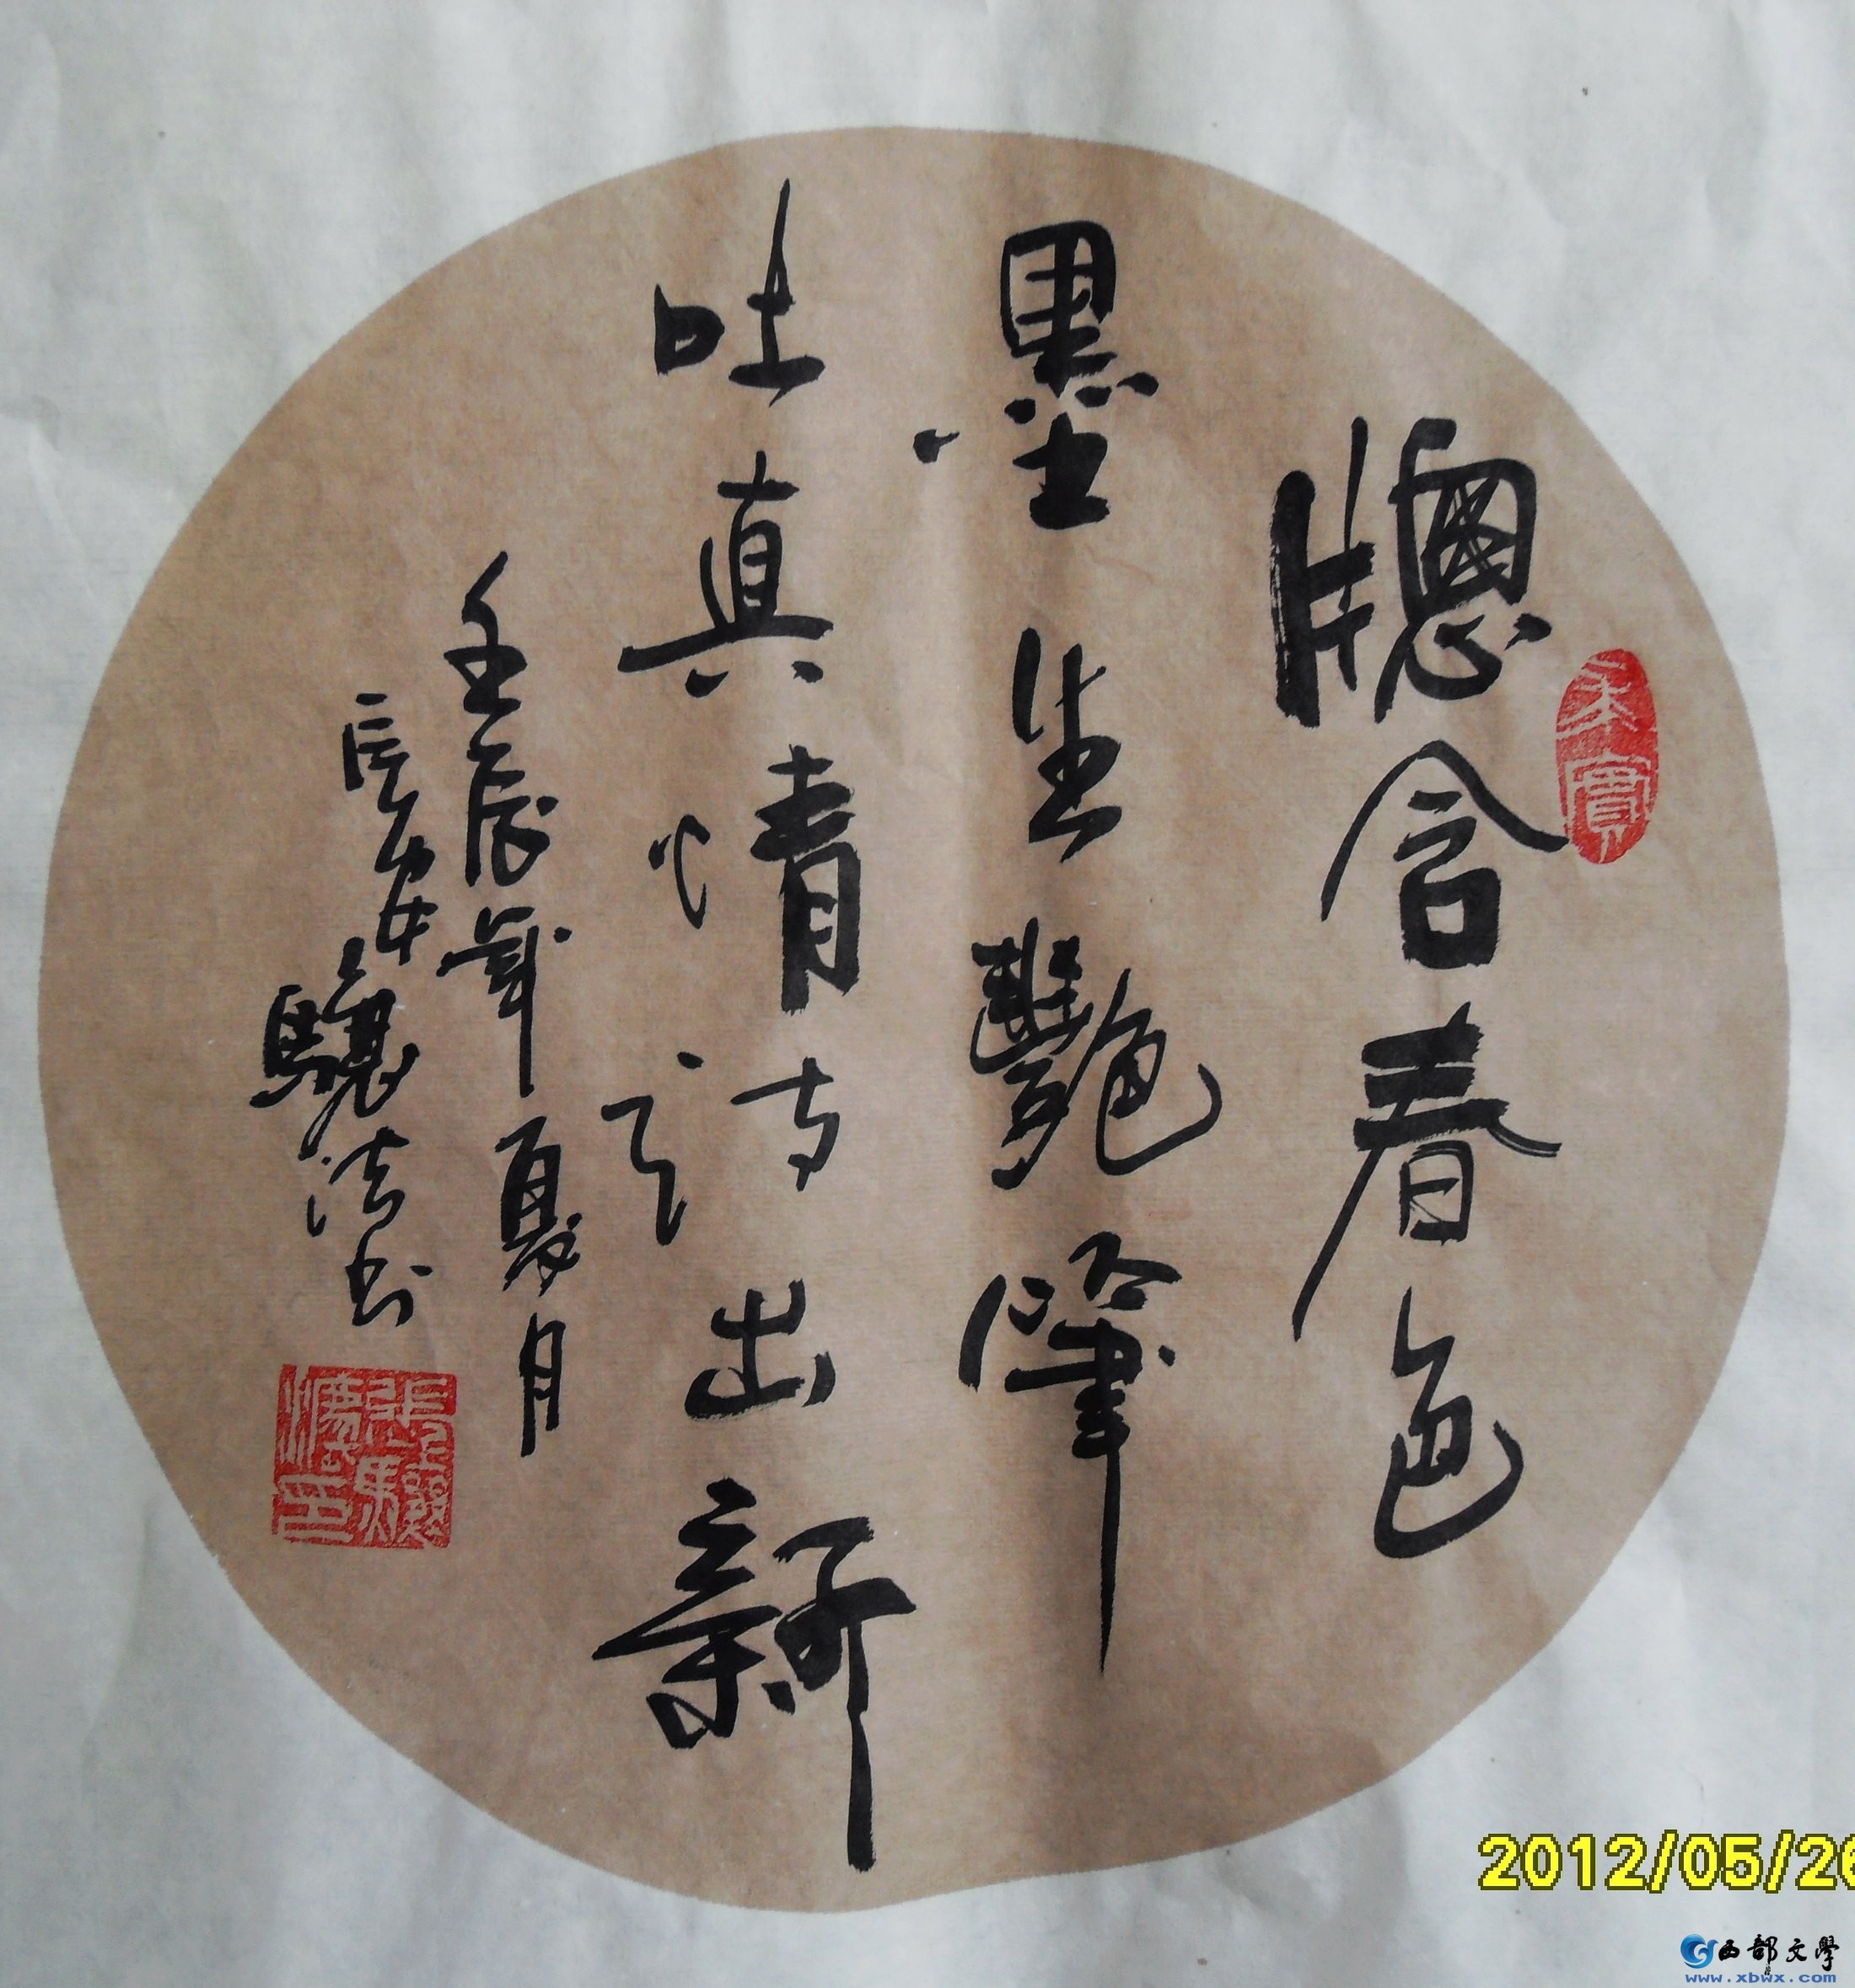 牕含春色
墨生艷筆
吐真情詩出新
壬辰年夏月
長安驤法书
2012/05/26
西部文學
www.xbwx.com